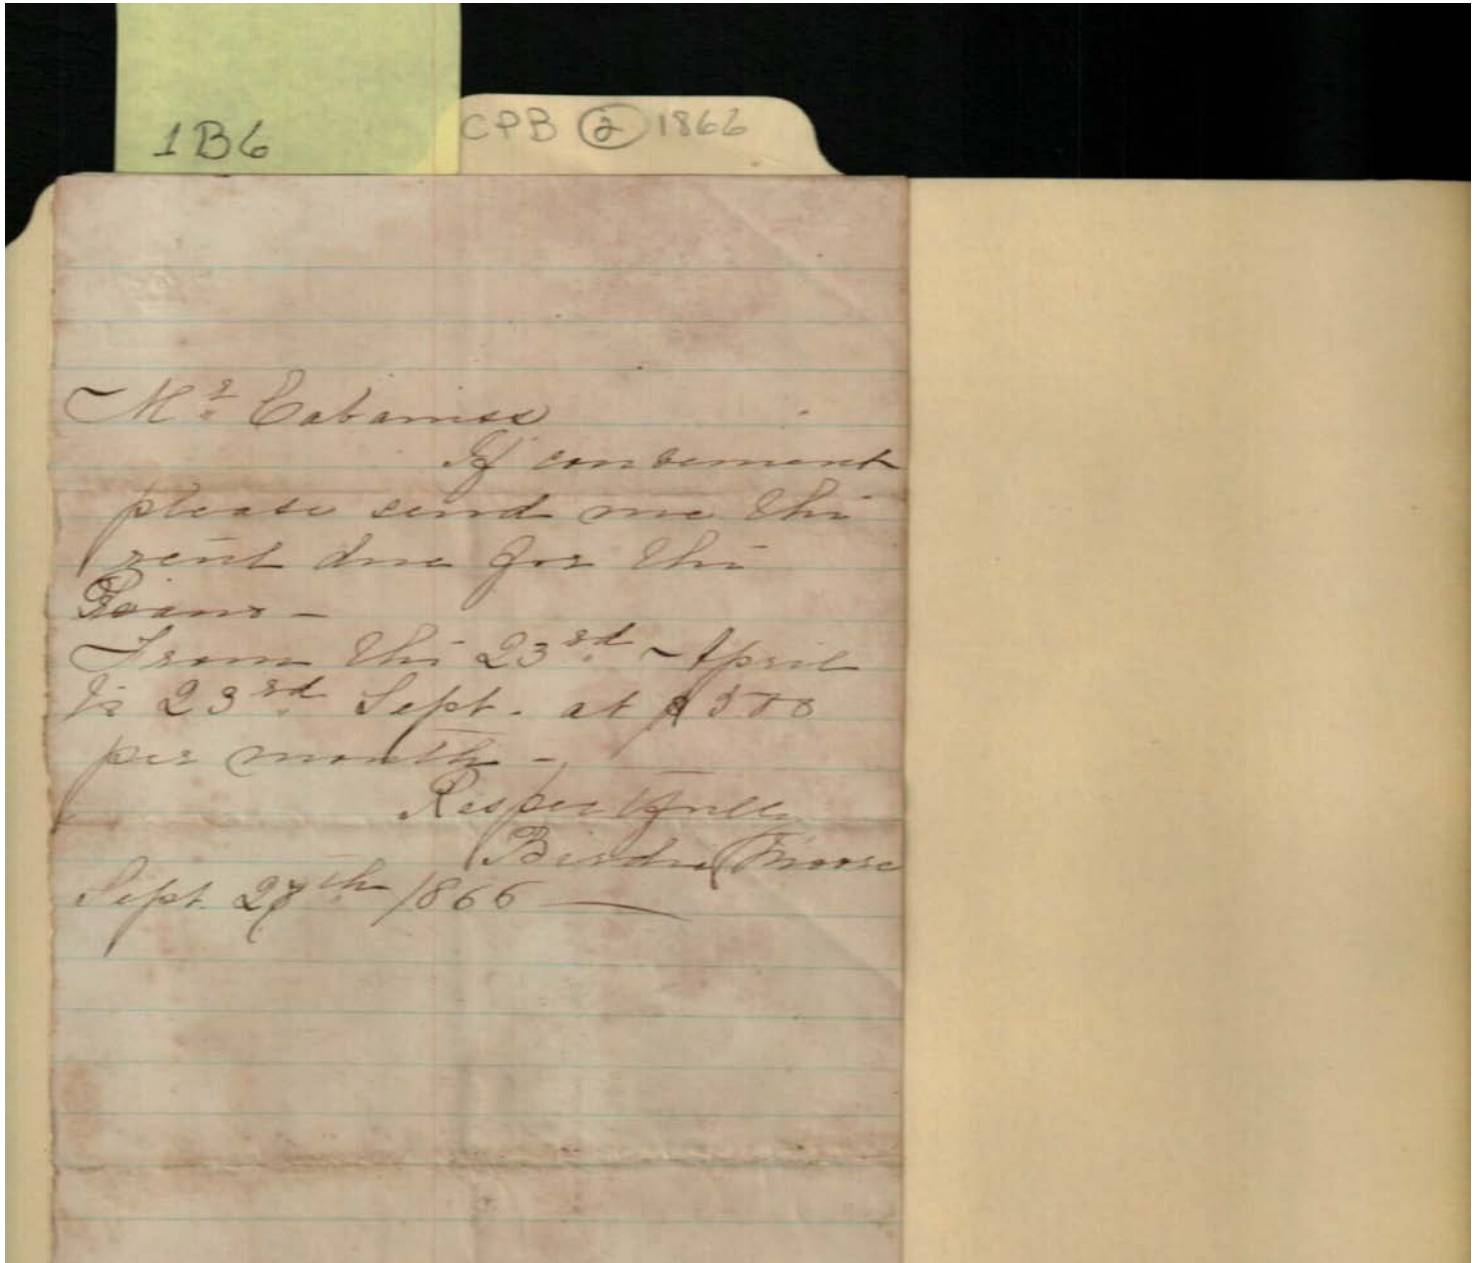 1B6
CPB 2 1866
Mr. Cabaniss
If convenient
please send me the
rent due for the
Piano -
From the 23rd April
to 23rd Sept. at $500
per month -
Respectfully
Birdie Moore
Sept. 27th /1866